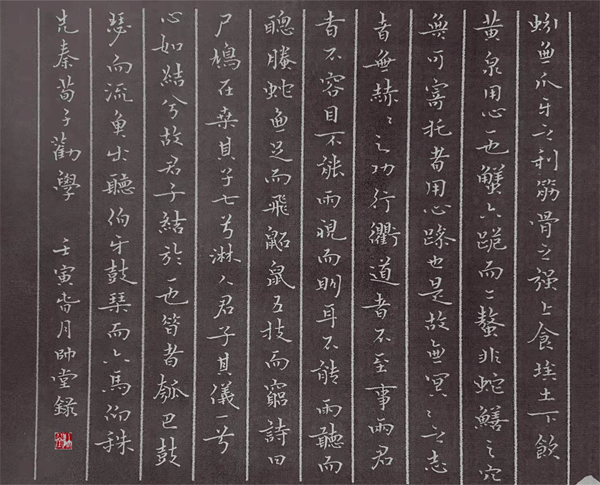 蚓無爪牙之利筋骨之强上食埃土下飲
黃泉用心一也蟹六跪而二螯非蛇鱔之穴
無可寄託者用心躁也是故無冥〻之志
者無赫〻之功行衢道者不至事兩君
者不容目不能兩視而明耳不能兩聽而
聰螣蛇無足而飛鼫鼠五技而窮詩曰
尸鳩在桑其子七兮淑人君子其儀一兮
心如結兮故君子結於一也昔者瓠巴鼓
瑟而流魚出聽伯牙鼓琴而六馬仰秣
先秦荀子勸學 壬寅月帥堂錄